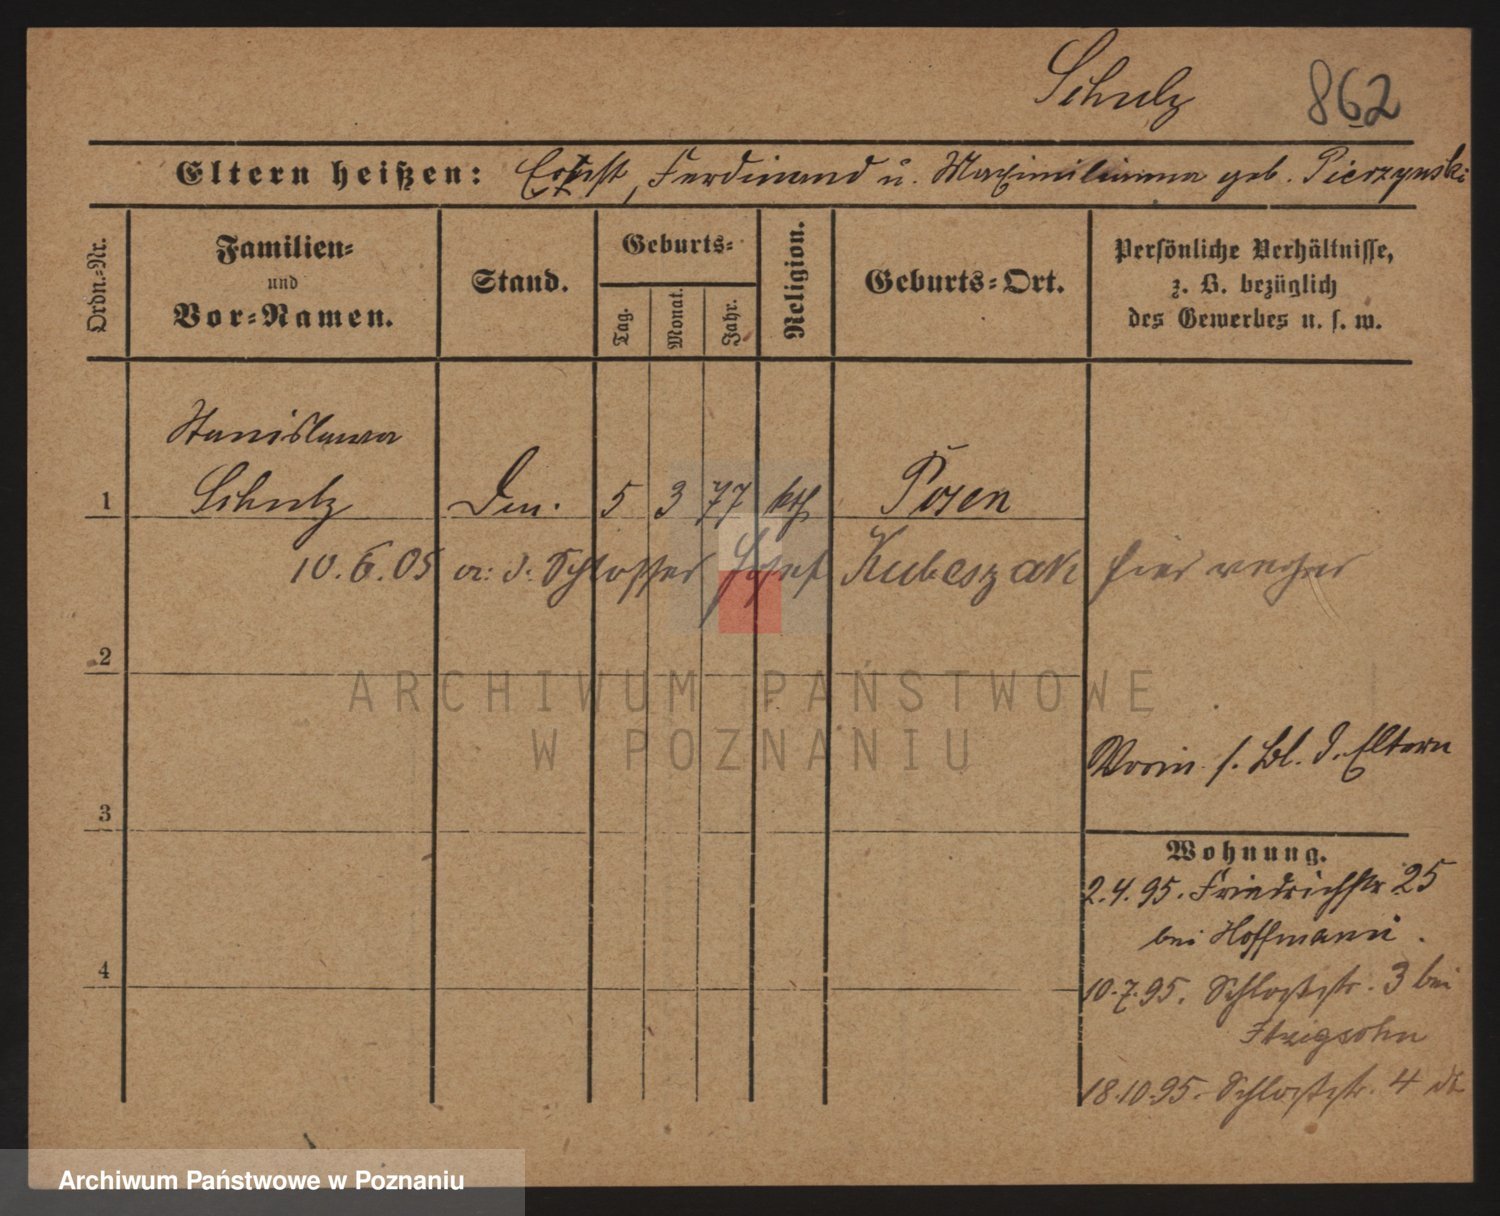 Schulz 862
Eltern heißen: Ernst, Ferdinand u. Maximilianna geb. Pierzynski
Ordn.-Nr.
Familien-
und
Vor-Namen.
Stand.
Geburts-
Tag.
Monat.
Jahr.
Religion.
Geburts-Ort.
Persönliche Verhältnisse,
z. B. bezüglich
des Gewerbes u. s. w.
Stanislawa
1 Schulz Den. 5 3 77 kth Posen
10.6.05 a: d: Schlosser Josef Kubeszak hier
2
ARCHIWUM PAŃSTWOWE
W POZNANIU
Vorin s. Bl. d. Eltern
3
Wohnung.
2.4.95. Friedrichstr. 25
bei Hoffmann.
4
10.7.95. Schloßstr. 3 bei
Itzigsohn
18.10.95. Schloßstr. 4
Archiwum Państwowe w Poznaniu